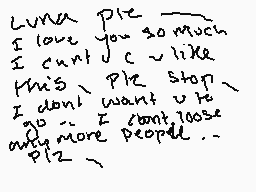 Luna plz
I love you so much
I cant c u like
this plz stop
I dont want u to
go .. I cant loose
any more people ..
plz